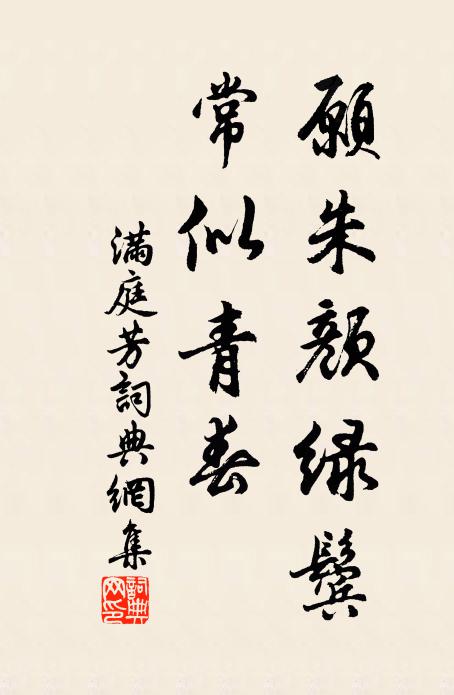 願朱顏綠鬢
常似青春
滿庭芳詞典網集
詞典網印